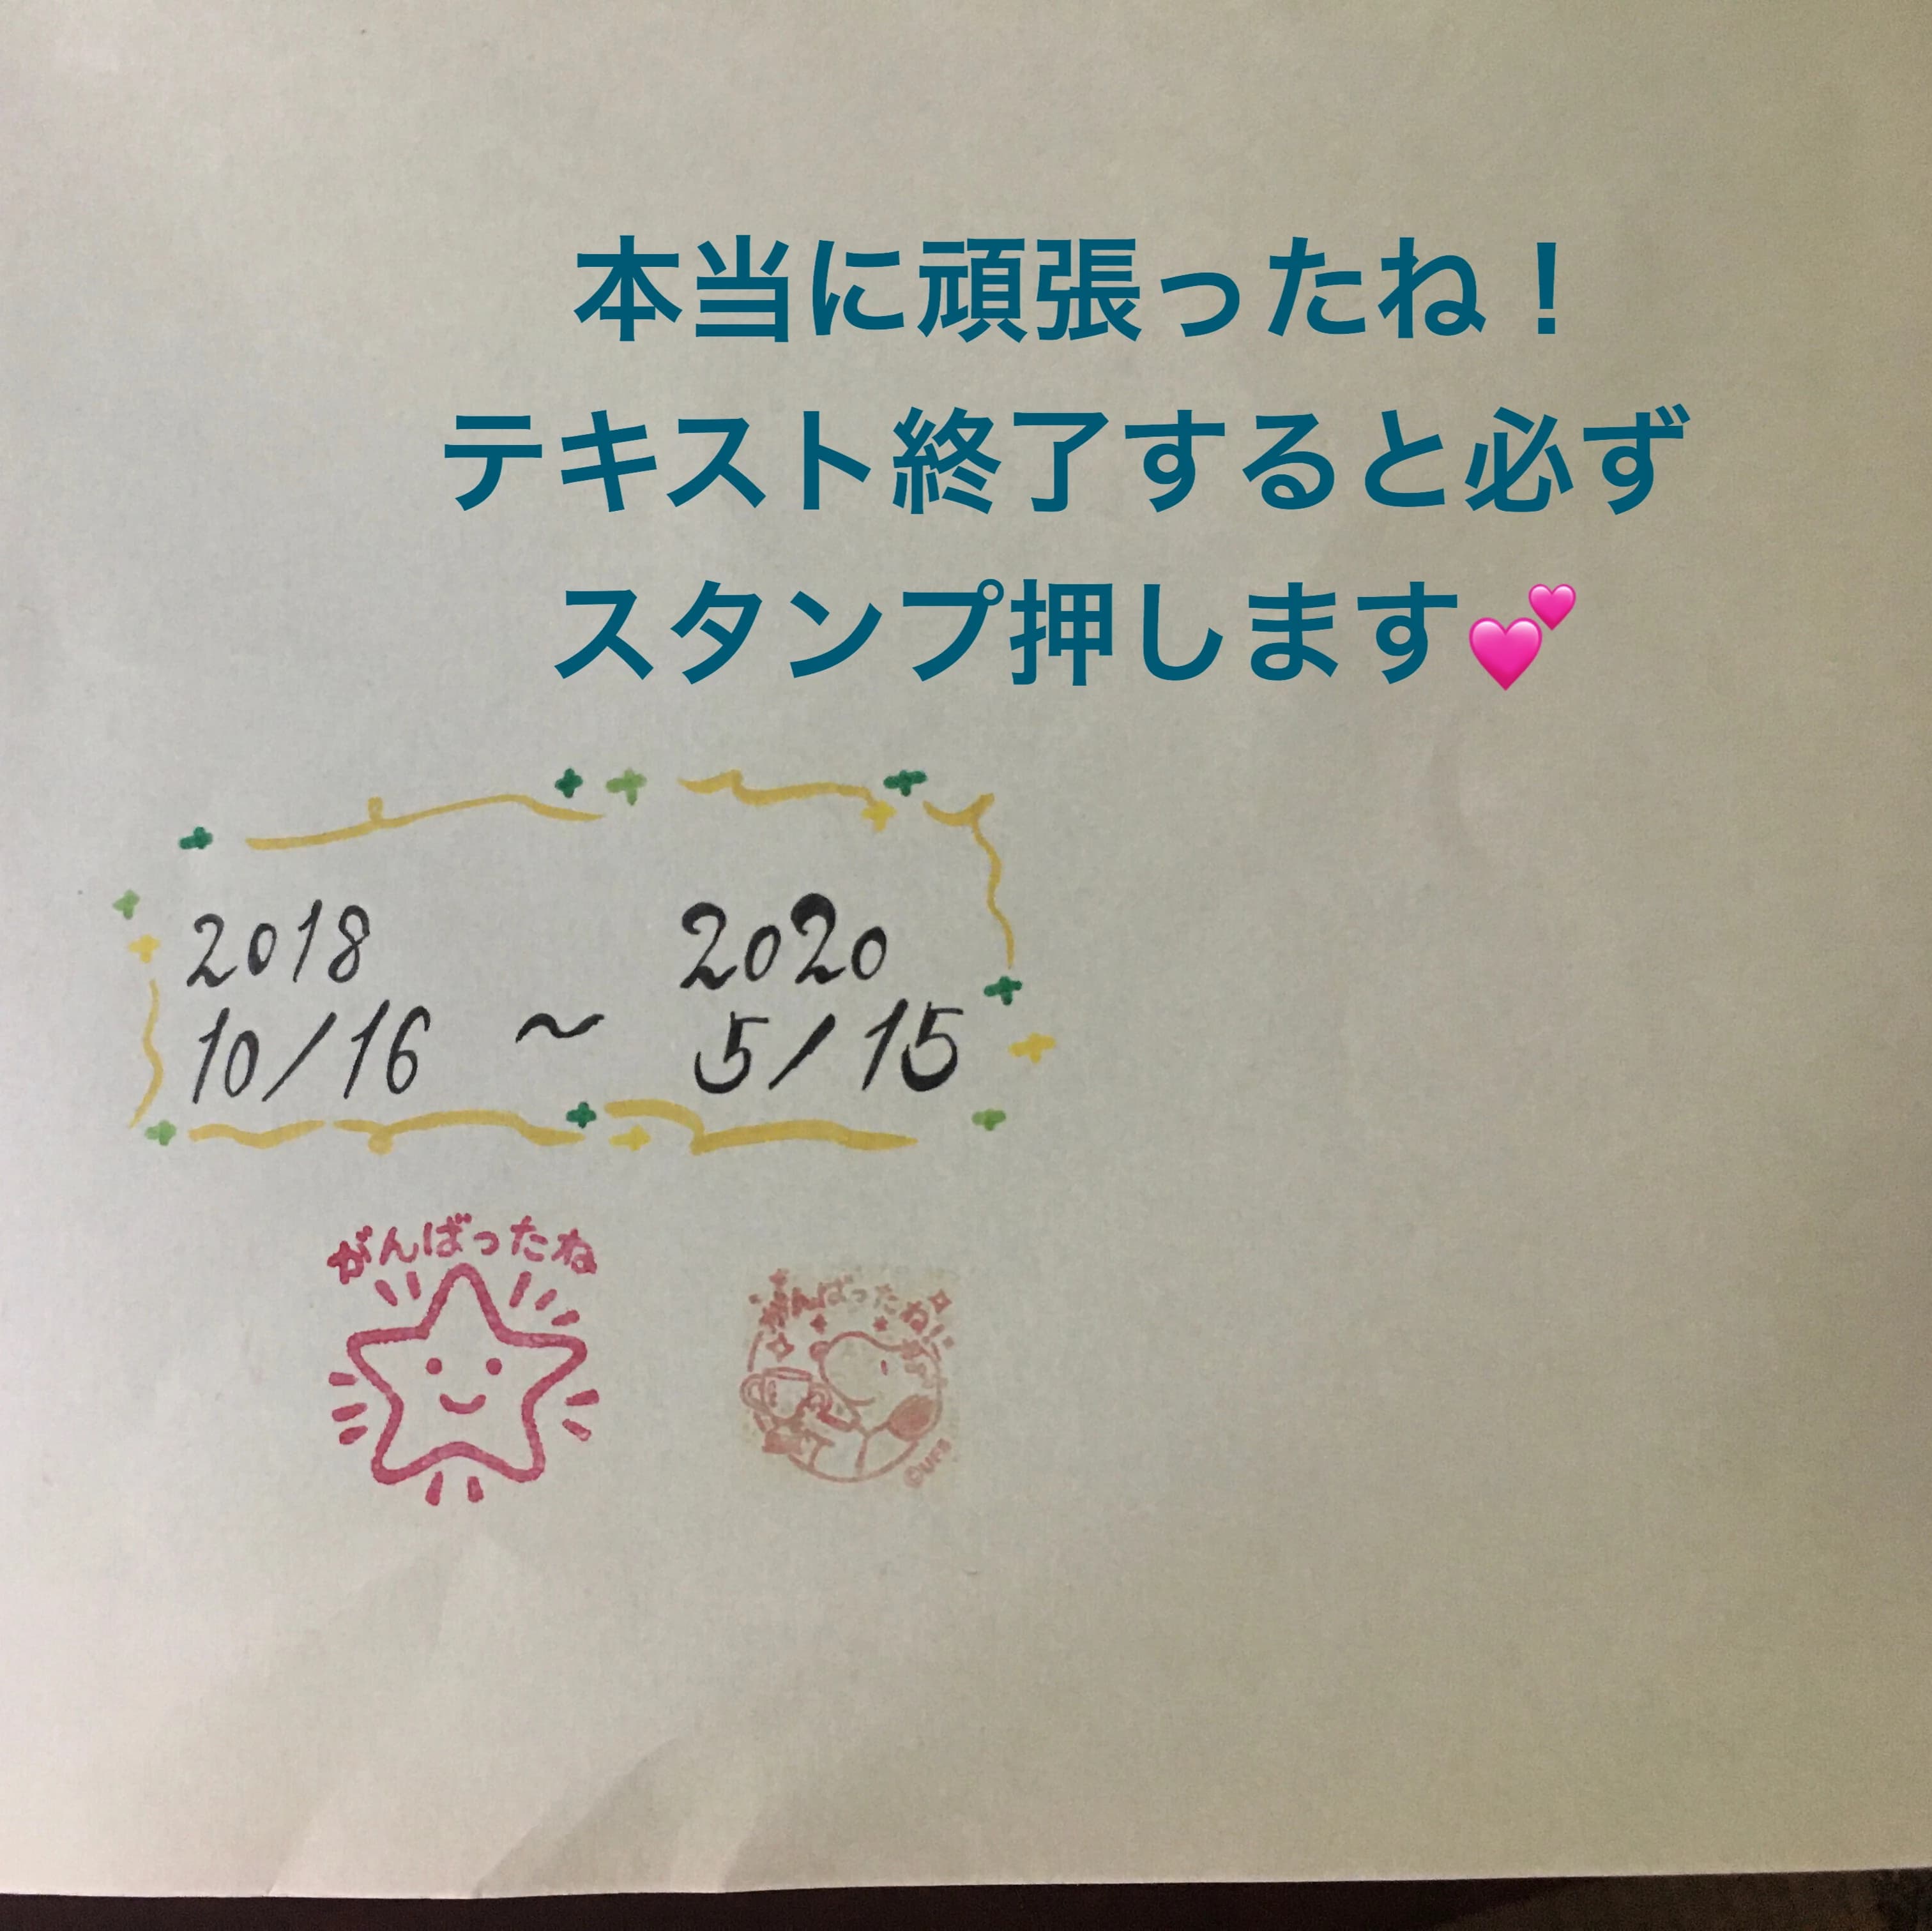 本当に頑張ったね！
テキスト終了すると必ず
スタンプ押します💕
2018
10/16 〜 2020
5/15
がんばったね
がんばったね!
©UFS